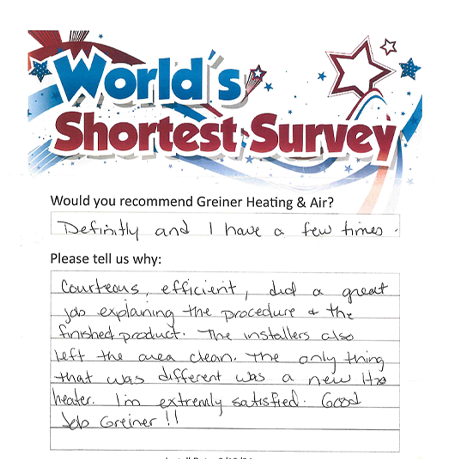 World's
Shortest Survey
Would you recommend Greiner Heating & Air?
Definitly and I have a few times.
Please tell us why:
Courteous, efficient, did a great
job explaining the procedure & the
finished product. The installers also
left the area clean. The only thing
that was different was a new H20
heater. I'm extremly satisfied. Good
Job Greiner!!